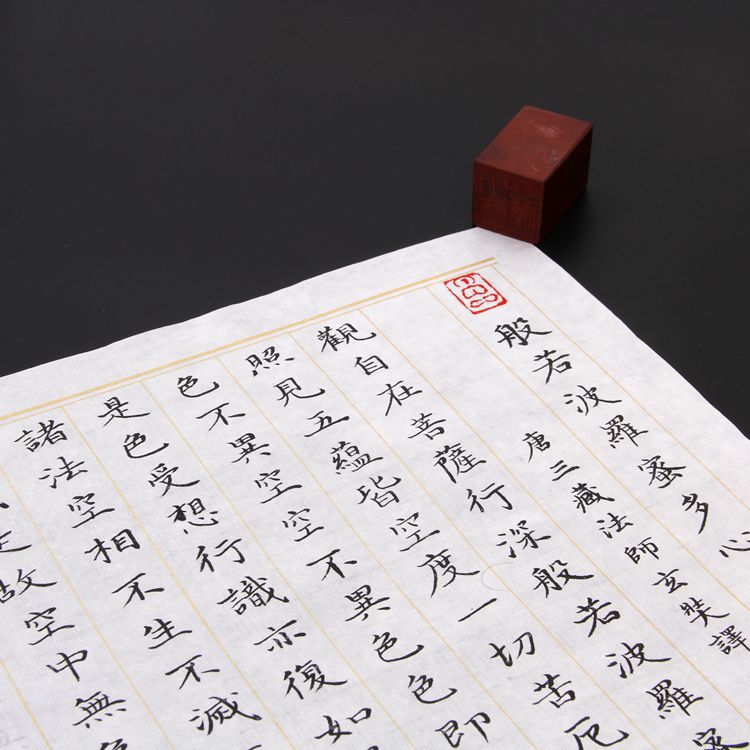 般若波羅蜜多心
唐三藏法師玄奘譯
觀自在菩薩行深般若波羅蜜
照見五蘊皆空度一切苦厄
色不異空空不異色色即
是色受想行識亦復如
諸法空相不生不滅
是故空中無色